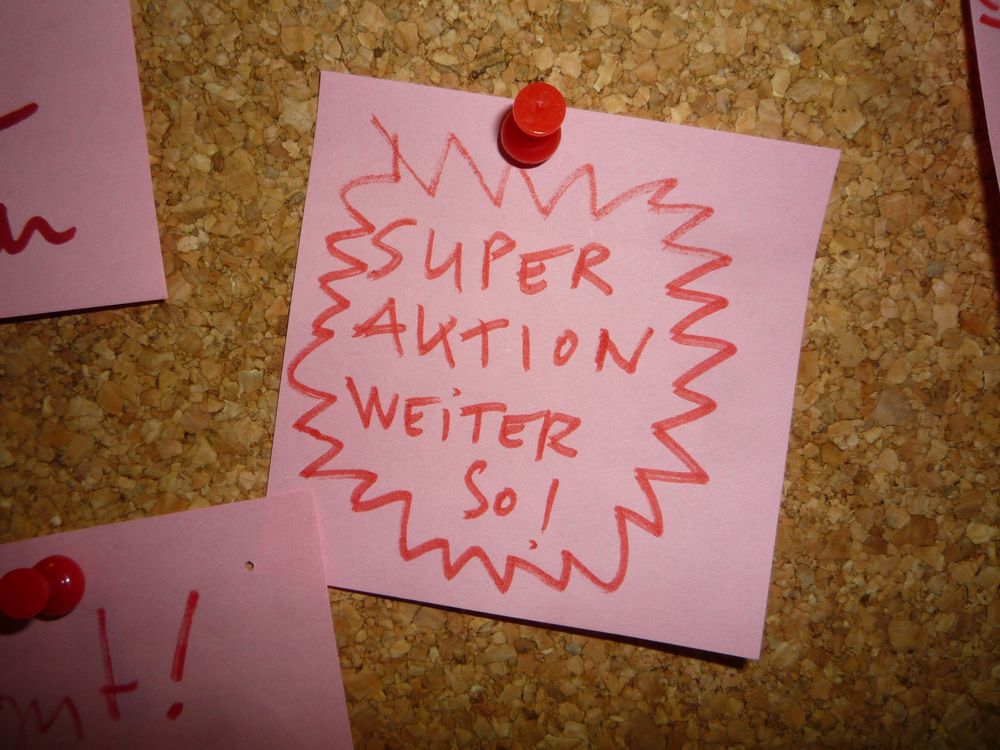 SUPER
AKTION
WEITER
So!